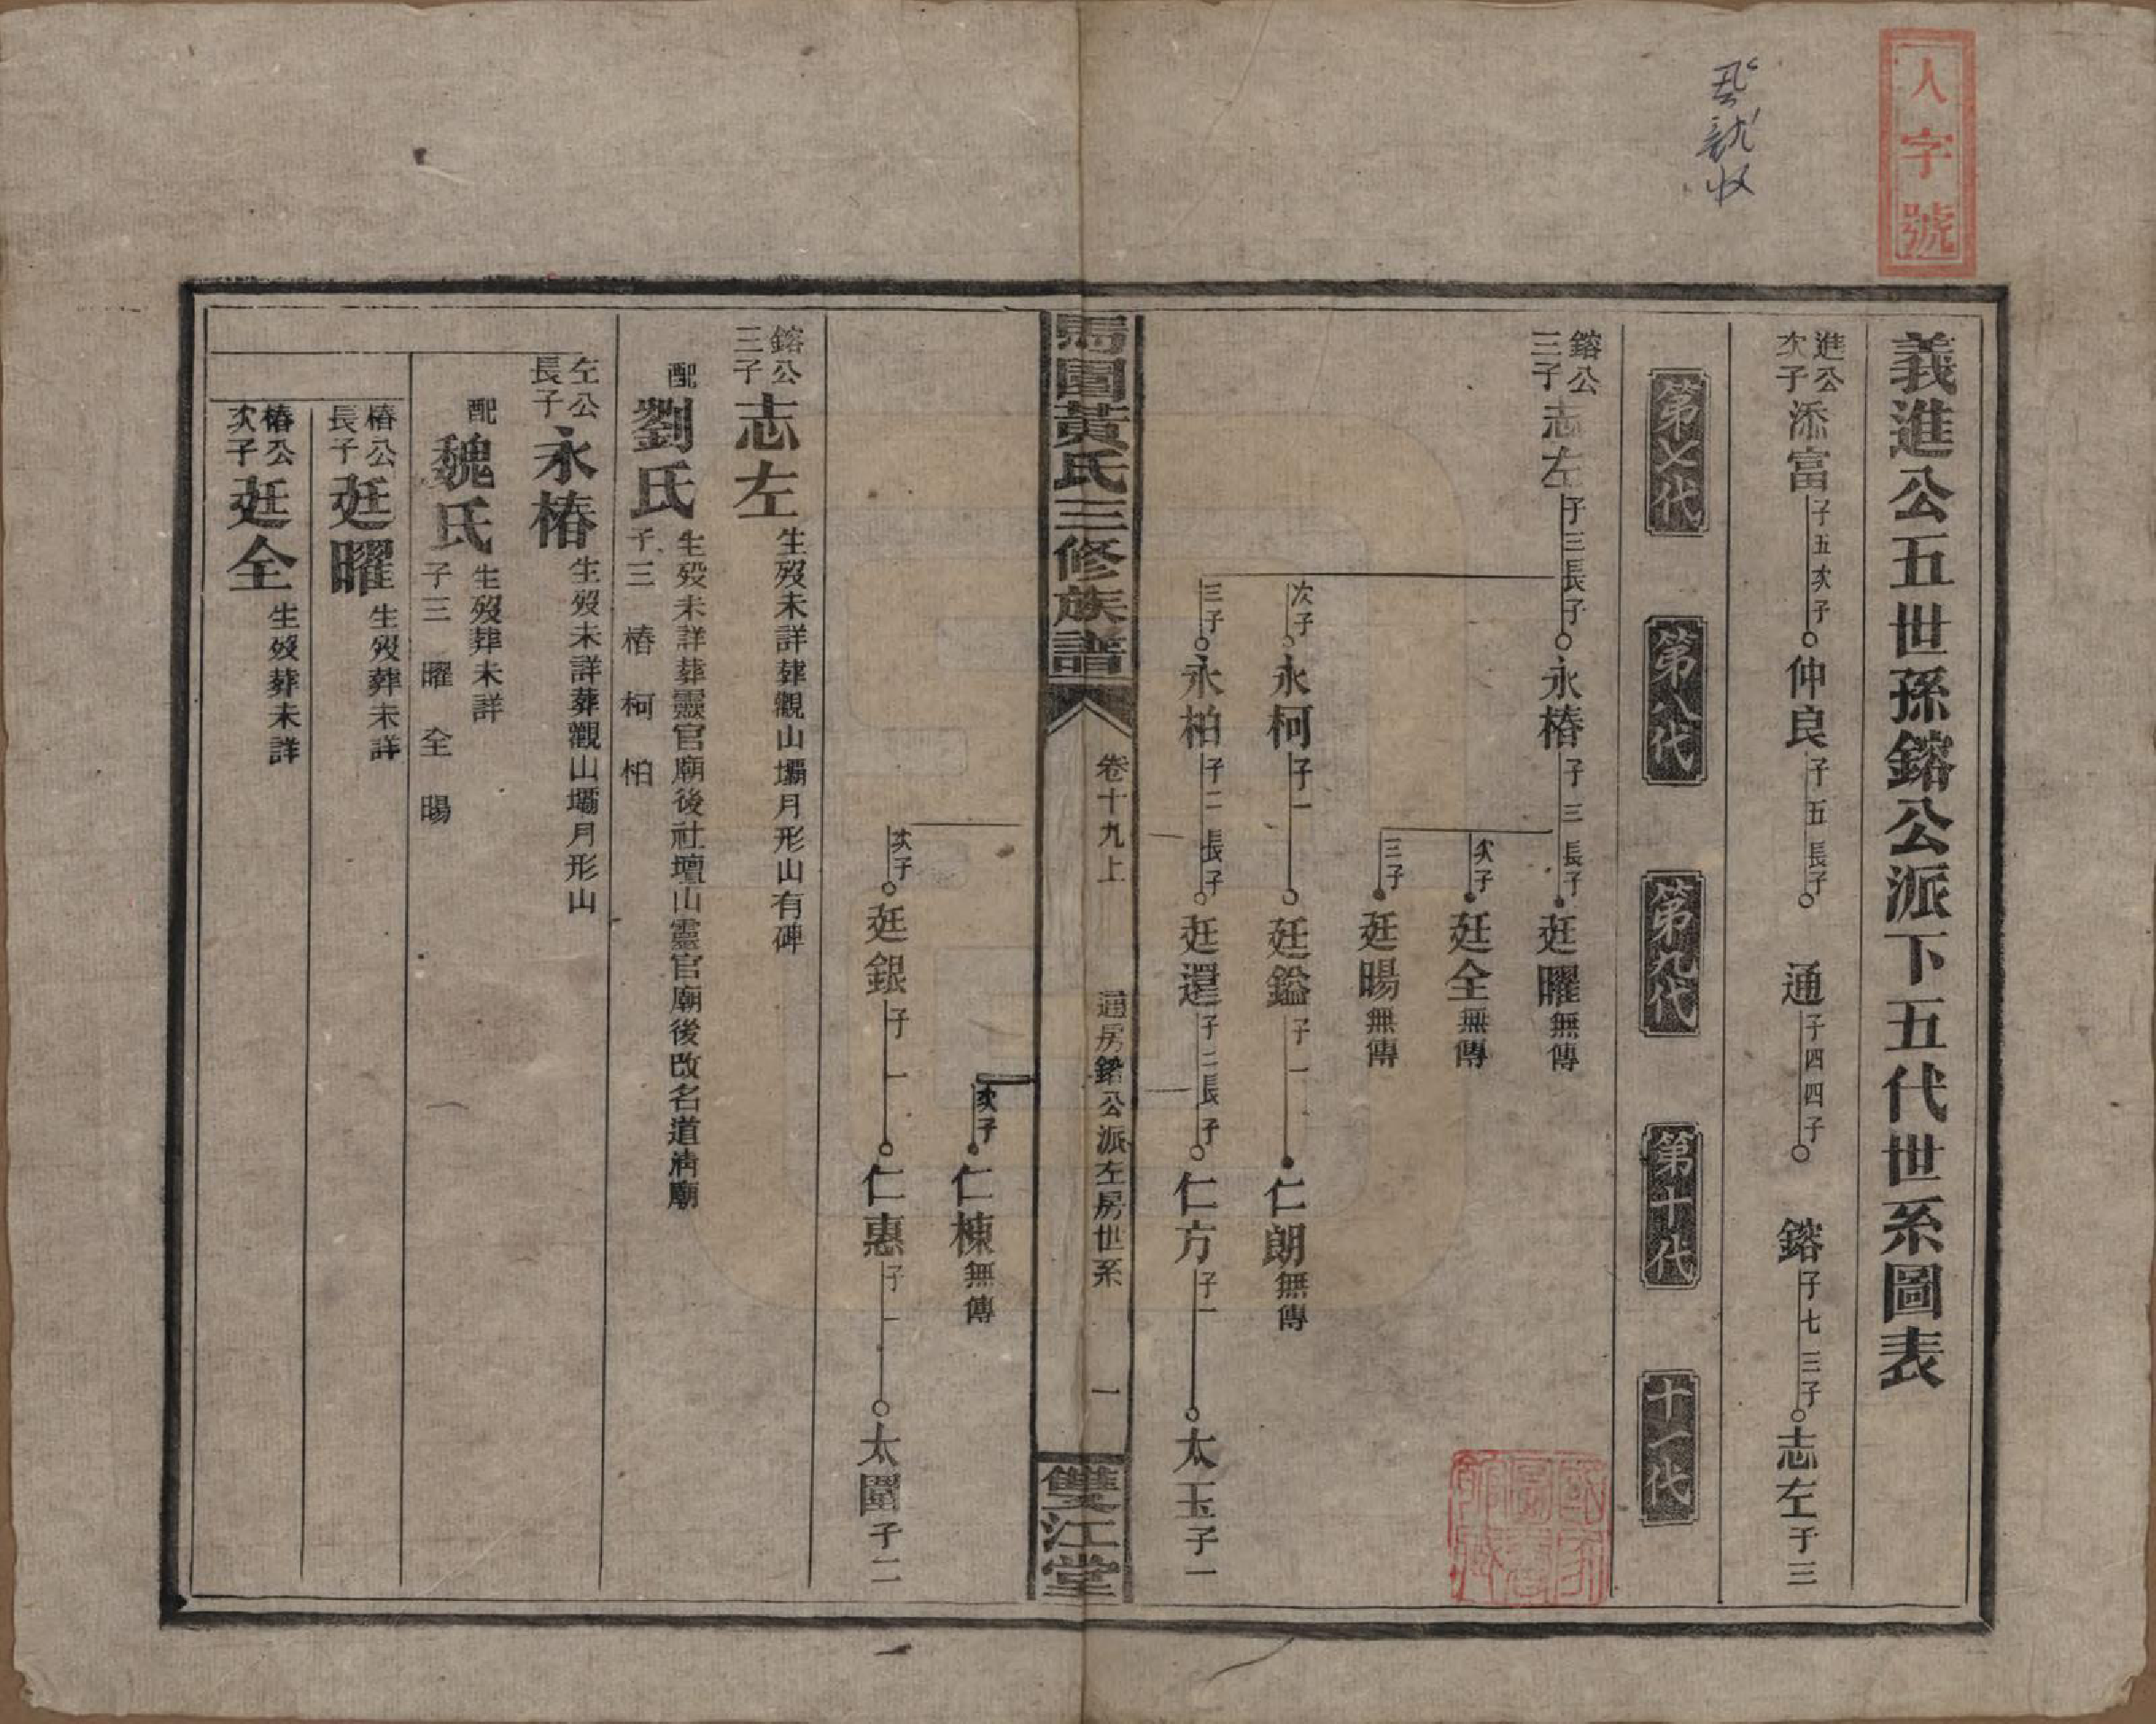 人字號
義進公五世孫鎔公派下五代世系圖表
進公次子添富子五次子仲良子五長子通子四四子鎔子七三子志左子三
第七代
第八代
第九代
第十代
十一代
鎔公三子志左子三長子永椿子三長子廷曜無傳
次子廷全無傳
三子廷暘無傳
次子永柯子一廷鎰子一仁朗無傳
三子永柏子二長子廷還子二長子仁方子一太玉子一
馬園黃氏三修族譜
卷十九上
通房鎔公派左房世系
一
雙江堂
次子仁棟無傳
次子廷銀子一仁惠子一太闓子二
鎔公三子志左生歿未詳葬觀山壩月形山有碑
配劉氏生歿未詳葬靈官廟後社壇山靈官廟後改名道清廟子三 椿 柯 柏
左公長子永椿生歿未詳葬觀山壩月形山
配魏氏生歿葬未詳子三 曜 全 暘
椿公長子廷曜生歿葬未詳
椿公次子廷全生歿葬未詳